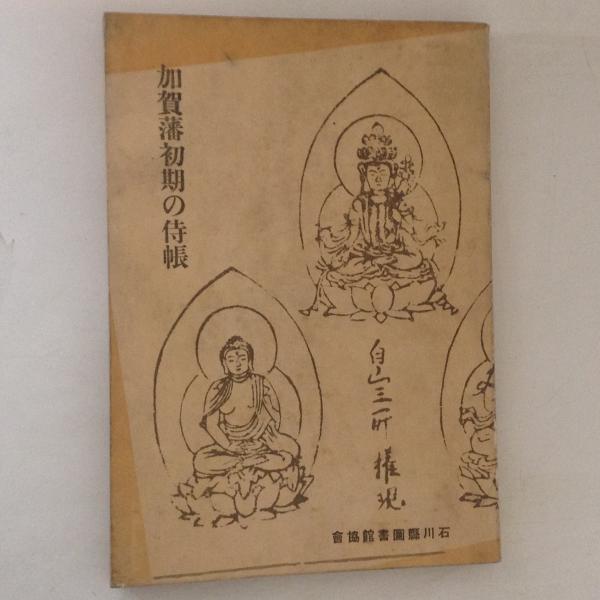 加賀藩初期の侍帳
白山三所権現
石川縣圖書館協會